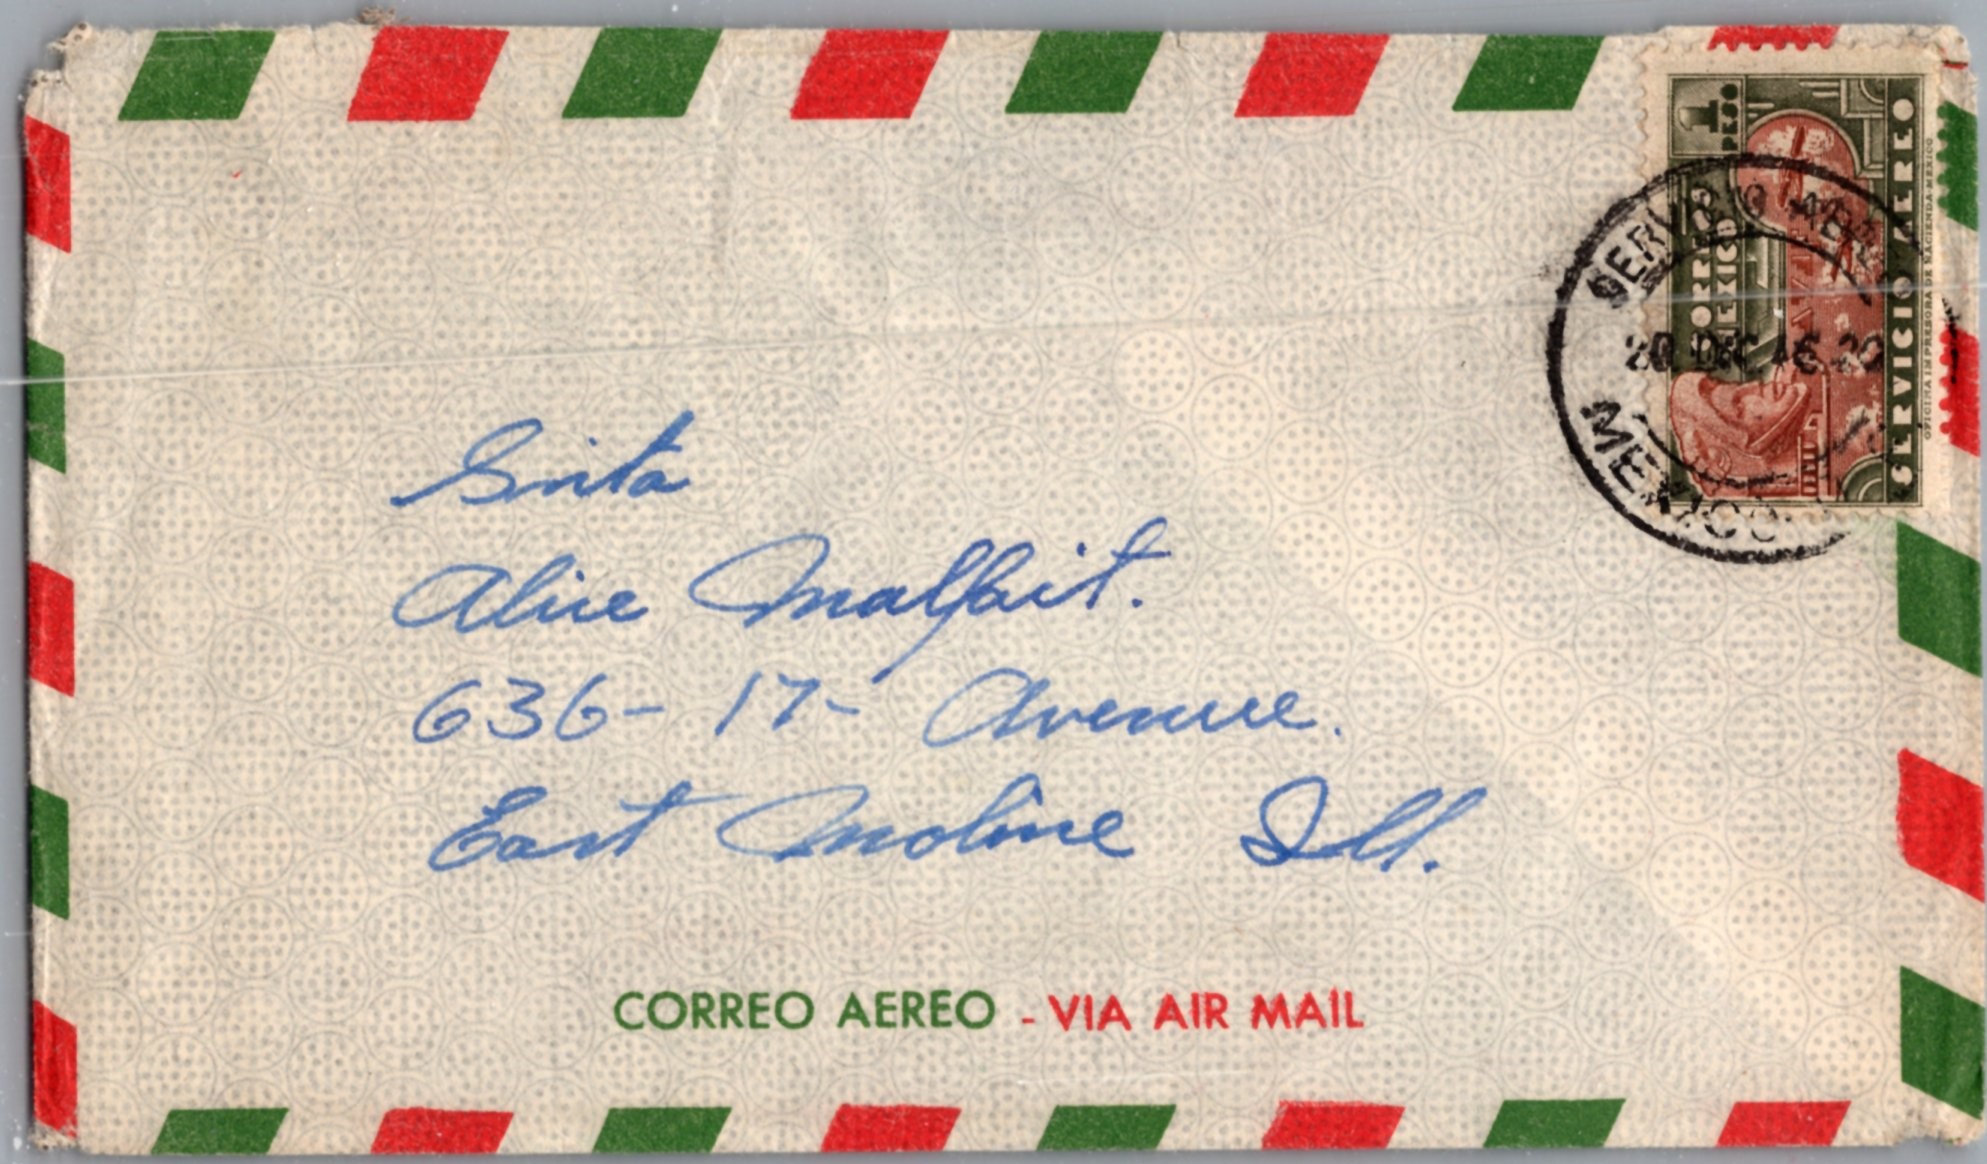 1
PESO
CORREOS
MEXICO
SERVICIO AEREO
OFICINA IMPRESORA DE HACIENDA-MEXICO
SERVICIO AEREO
20 DEC 46
MEXICO
Srita
Alice Malfait.
636- 17- Avenue.
East Moline Ill.
CORREO AEREO - VIA AIR MAIL